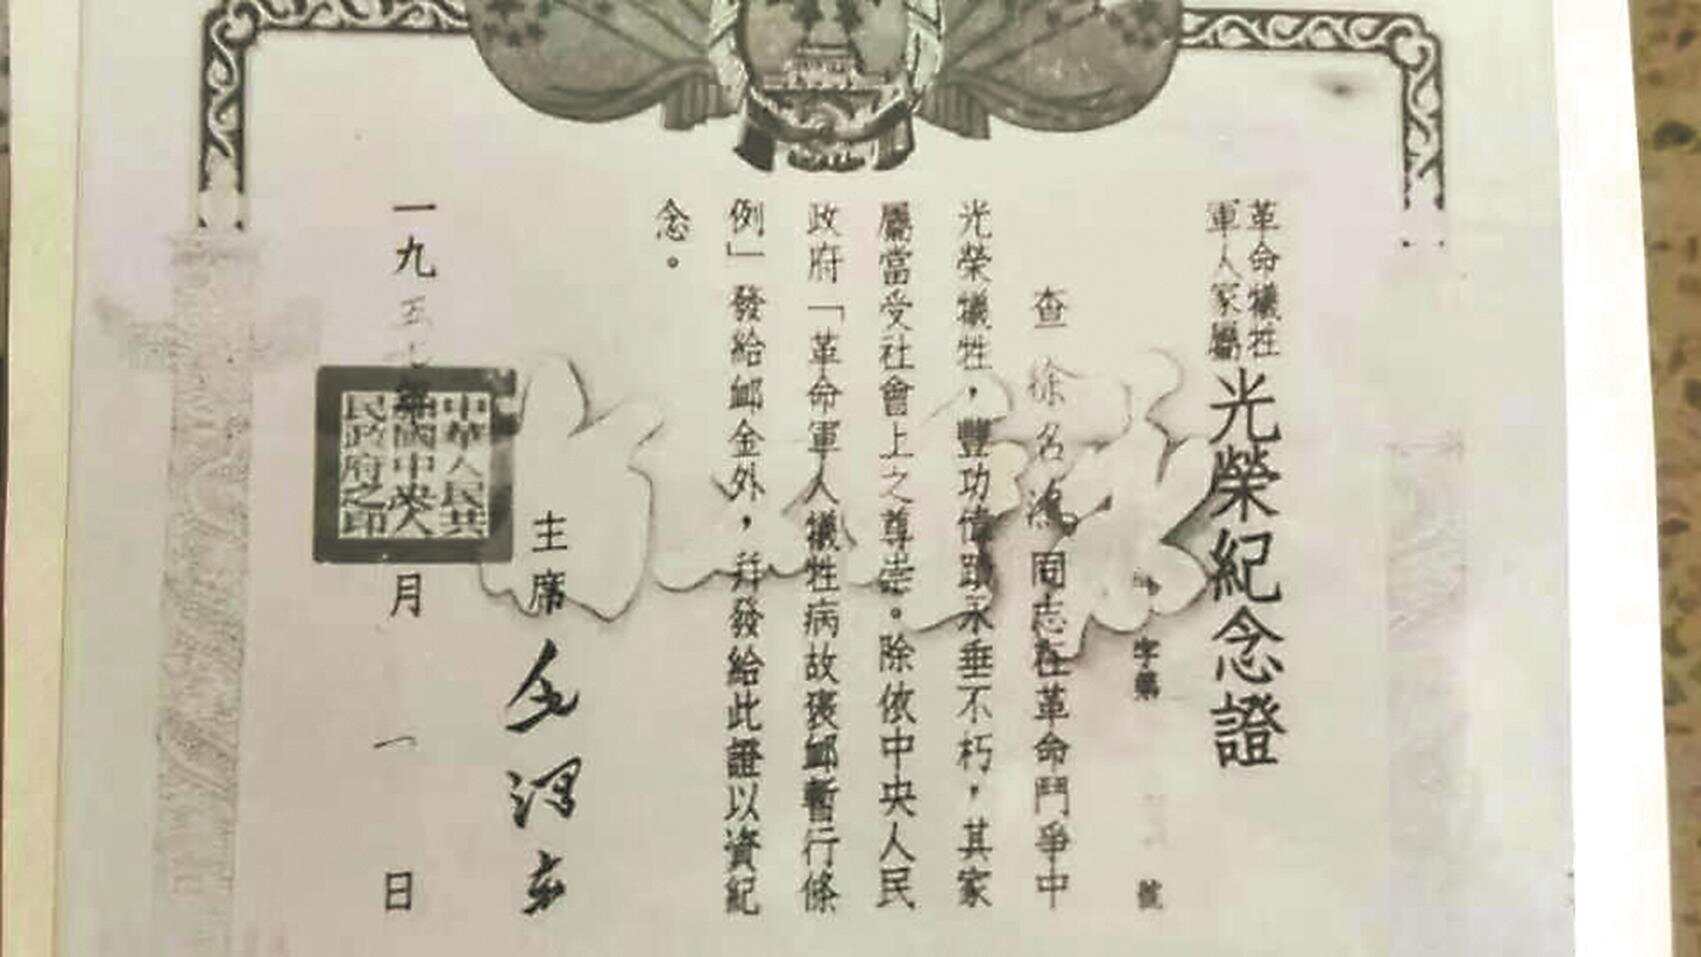 革命犧牲
軍人家屬
光榮紀念證
字第 號
查徐名鴻同志在革命鬥爭中
光榮犧牲，豐功偉蹟永垂不朽，其家
屬當受社會上之尊崇。除依中央人民
政府「革命軍人犧牲病故褒卹暫行條
例」發給卹金外，幷發給此證以資紀
念。
主席 毛澤東
一九五七年 月一日
中華人民共
和國中央人
民政府之印